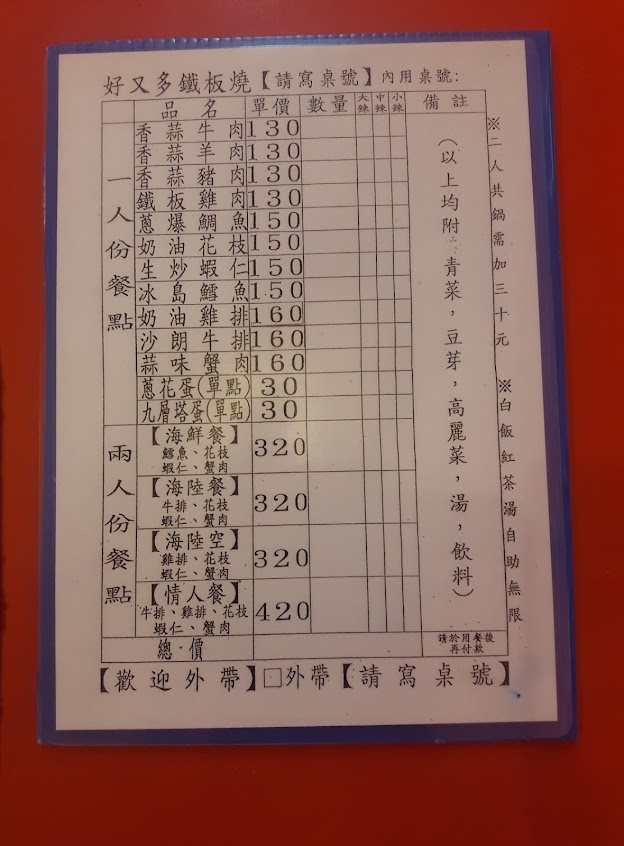 好又多鐵板燒【請寫桌號】內用桌號:
品名 單價 數量 大辣 中辣 小辣 備註
一人份餐點
香蒜牛肉 130
香蒜羊肉 130
香蒜豬肉 130
鐵板雞肉 130
蔥爆鯛魚 150
奶油花枝 150
生炒蝦仁 150
冰島鱈魚 150
奶油雞排 160
沙朗牛排 160
蒜味蟹肉 160
蔥花蛋(單點) 30
九層塔蛋(單點) 30
兩人份餐點
【海鮮餐】 320
鱈魚、花枝
蝦仁、蟹肉
【海陸餐】 320
牛排、花枝
蝦仁、蟹肉
【海陸空】 320
雞排、花枝
蝦仁、蟹肉
【情人餐】 420
牛排、雞排、花枝
蝦仁、蟹肉
總價
(以上均附:青菜,豆芽,高麗菜,湯,飲料)
請於用餐後
再付款
※二人共鍋需加三十元 ※白飯紅茶湯自助無限
【歡迎外帶】□外帶【請寫桌號】